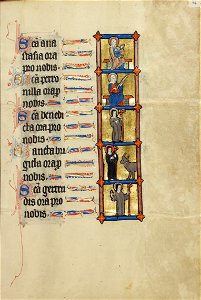 Sca ana
stasia ora
pro nobis
Sca petro
nilla ora p
nobis
Sca bened
cta ora pro
nobis
Sancta bri
gida ora p
nobis
Sca gertru
dis ora pro
nobis